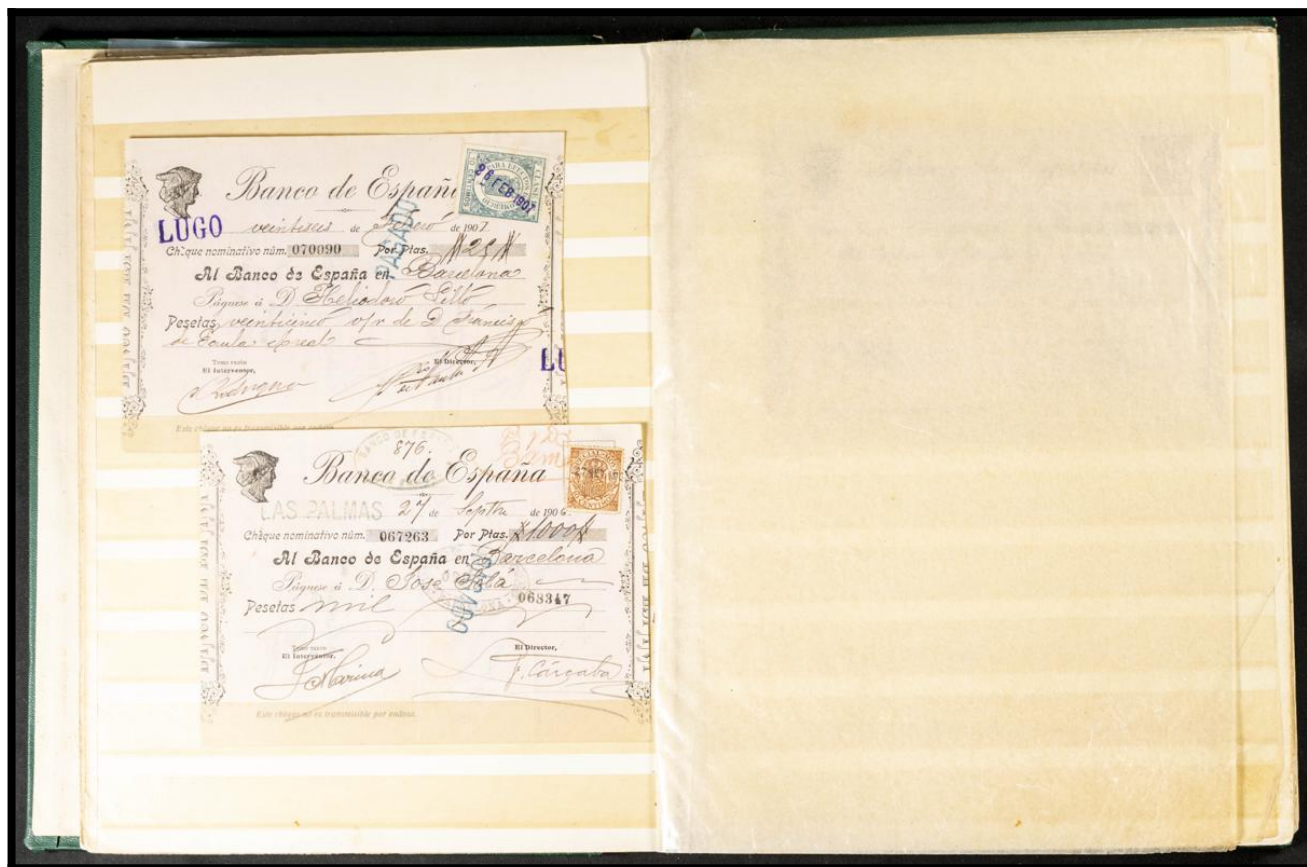 Banco de España
10 CENTIMOS
26 FEB 1907
LUGO
veintiseis de de 1907
PAGADO
Cheque nominativo núm. 070090 Por Ptas. 25
Al Banco de España en Barcelona
Páguese á D. Heliodoro
Pesetas veinticinco o/r de D. Francisco
de Paula
Tomé razón
El Interventor,
El Director,
Este cheque no es transmisible por endoso.
BANCO DE ESPAÑA
876.
Banco de España
LAS PALMAS 27 de Septre de 1906.
Cheque nominativo núm. 067263 Por Ptas. 1.000
Al Banco de España en Barcelona
Páguese á D. José Solá
PAGADO
Pesetas mil 068347
Tomé razón
El Interventor,
El Director,
Marina
F. Cárgaba
Este cheque no es transmisible por endoso.